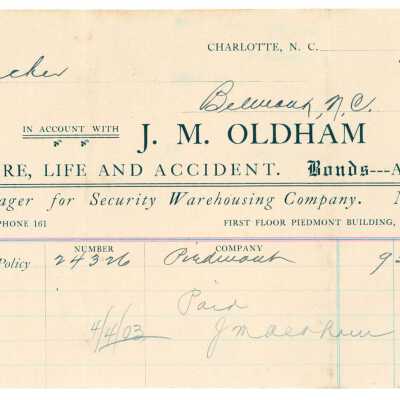 CHARLOTTE, N. C.
Belmont, N.C.
IN ACCOUNT WITH J. M. OLDHAM
RE, LIFE AND ACCIDENT. Bonds---A
ager for Security Warehousing Company.
PHONE 161 FIRST FLOOR PIEDMONT BUILDING,
NUMBER COMPANY
Policy 24326 Piedmont 9
Paid
4/4/03 J M Oldham